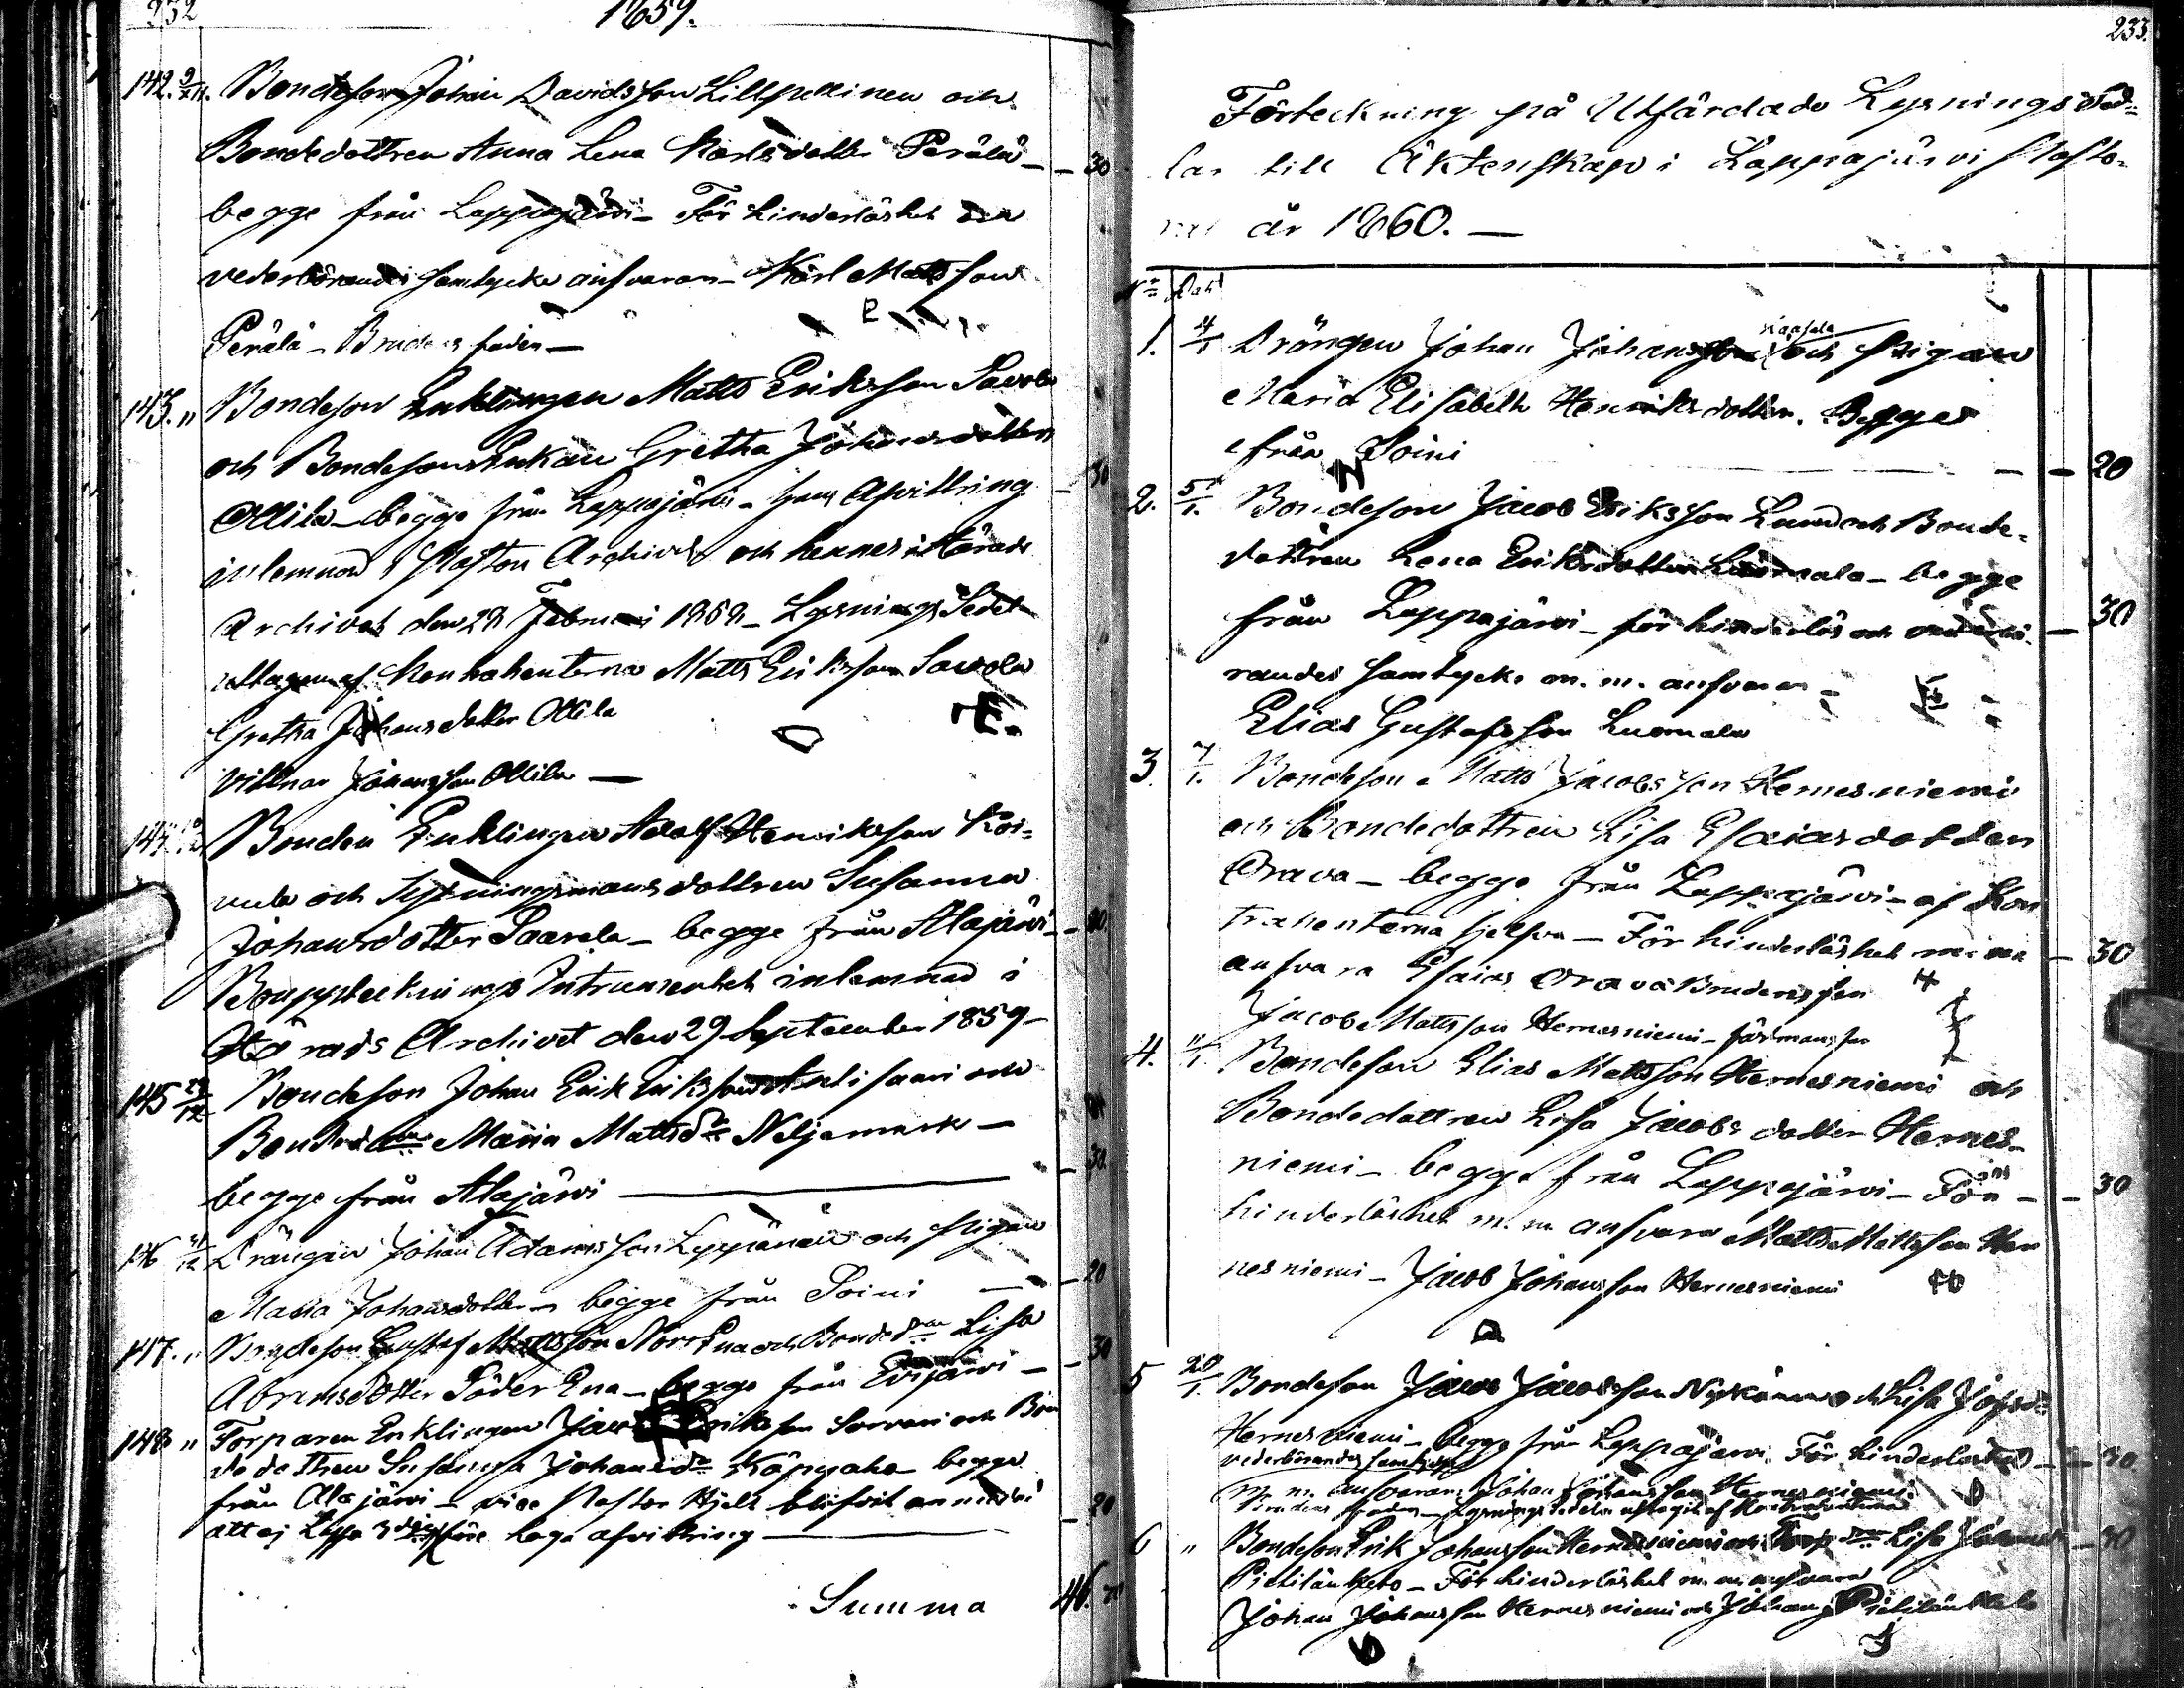 232
1859.
142. 9/XII. Bondeson Johan Davidsson Lillpekkinen och
Bondedottren Anna Lena Karlsdotter Perälä — 30
begge från Lappajärvi – För hinderlöshet och
vederbörandes samtycke ansvaras – Karl Mattsson
Perälä – Brudens fader —
143. " Bondeson Enklingen Matts Eriksson Savola
och Bondesons Enkan Gretha Johansdotter
Ollila – begge från Lappajärvi – hans Afvittring — 30
inlemnad i Pastors Archivet och hennes i Härads
Archivet den 28 Februari 1859 – Lysnings Sedel
uttagen af Kontrahenterna Matts Eriksson Savola
Gretha Johansdotter Ollila
Vittnar Johansson Ollila —
144. Bonden Enklingen Adolf Henriksson Koi-
vula och Johansdotter Susanna
Johansdotter Saarela – begge från Alajärvi –
Bouppteknings Intrumentet inlemnad i
Härads Archivet den 29 September 1859 –
145 29/12 Bondeson Johan Erik Eriksson Anlisaari och
Bondedotn Maria Mattsdr Neljemark — — 30.
begge från Alajärvi —
146 31/12 Drängen Johan Adamsson Leppänen och Pigan
Maria Johansdotter – begge från Soini — — 20
147. " Bondeson Gustaf Mattsson Norr Ena och Bondedn Lisa
Abramsdotter Söder Ena – begge från Evijärvi — — 30
148 " Torparen Enklingen Jacob Eriksson Sorvari och Bon
dedottren Susanna Johansdr Köpyaho begge
från Alajärvi – vice Pastor Hjelt blifvit anmodad
att ej lysa 3dje före laga afvittring — — 20
Summa 46.
233.
Förteckning på Utfärdade Lysnings Sed-
lar till Äktenskap i Lappajärvi Pasto-
rat år 1860. —
No Dat
1. 4/1 Drängen Johan Johansson och Pigan
Maria Elisabeth Henriksdotter. Begges
från Soini — — 20
2. 5/1. Bondeson Jacob Eriksson Lund och Bonde-
dottren Lena Eriksdotter Luomala – begge
från Lappajärvi – för hinderlös och vederbö- — 30
randes samtycke m. m. ansvaras –
Elias Gustafsson Luomala
3. 7/1. Bondeson Matts Jacobsson Hernesniemi
och Bondedottren Lisa Esaiasdotter
Orava – begge från Lappajärvi – af Kon
trahenterna sjelfva – För hinderlöshet m. m. — 30
ansvara Esaias Orava Brudens far
Jacob Mattsson Hernesniemi – fästmans far
4. 11/1. Bondeson Elias Mattsson Hernesniemi och
Bondedottren Lisa Jacobsdotter Hernes-
niemi – begge från Lappajärvi – För — — 30
hinderlöshet m. m. ansvara Matts Mattsson Her
nesniemi – Jacob Johansson Hernesniemi
5 20/1. Bondeson Jacob Jacobsson Nykänen och Lisa Johsdr
Hernesniemi – begge från Lappajärvi. För hinderlöshet —
vederbörandes samtycke
m. m. ansvaras Johan Johansson Hernesniemi
Brudens fader – Lysnings sedeln uttagit af Kontrahenterna
6 " Bondeson Erik Johansson Hernesniemi och Lisa
Pietilänketo – För hinderlöshet m. m. ansvara
Johan Johansson Hernesniemi och Johan Pietilänketo